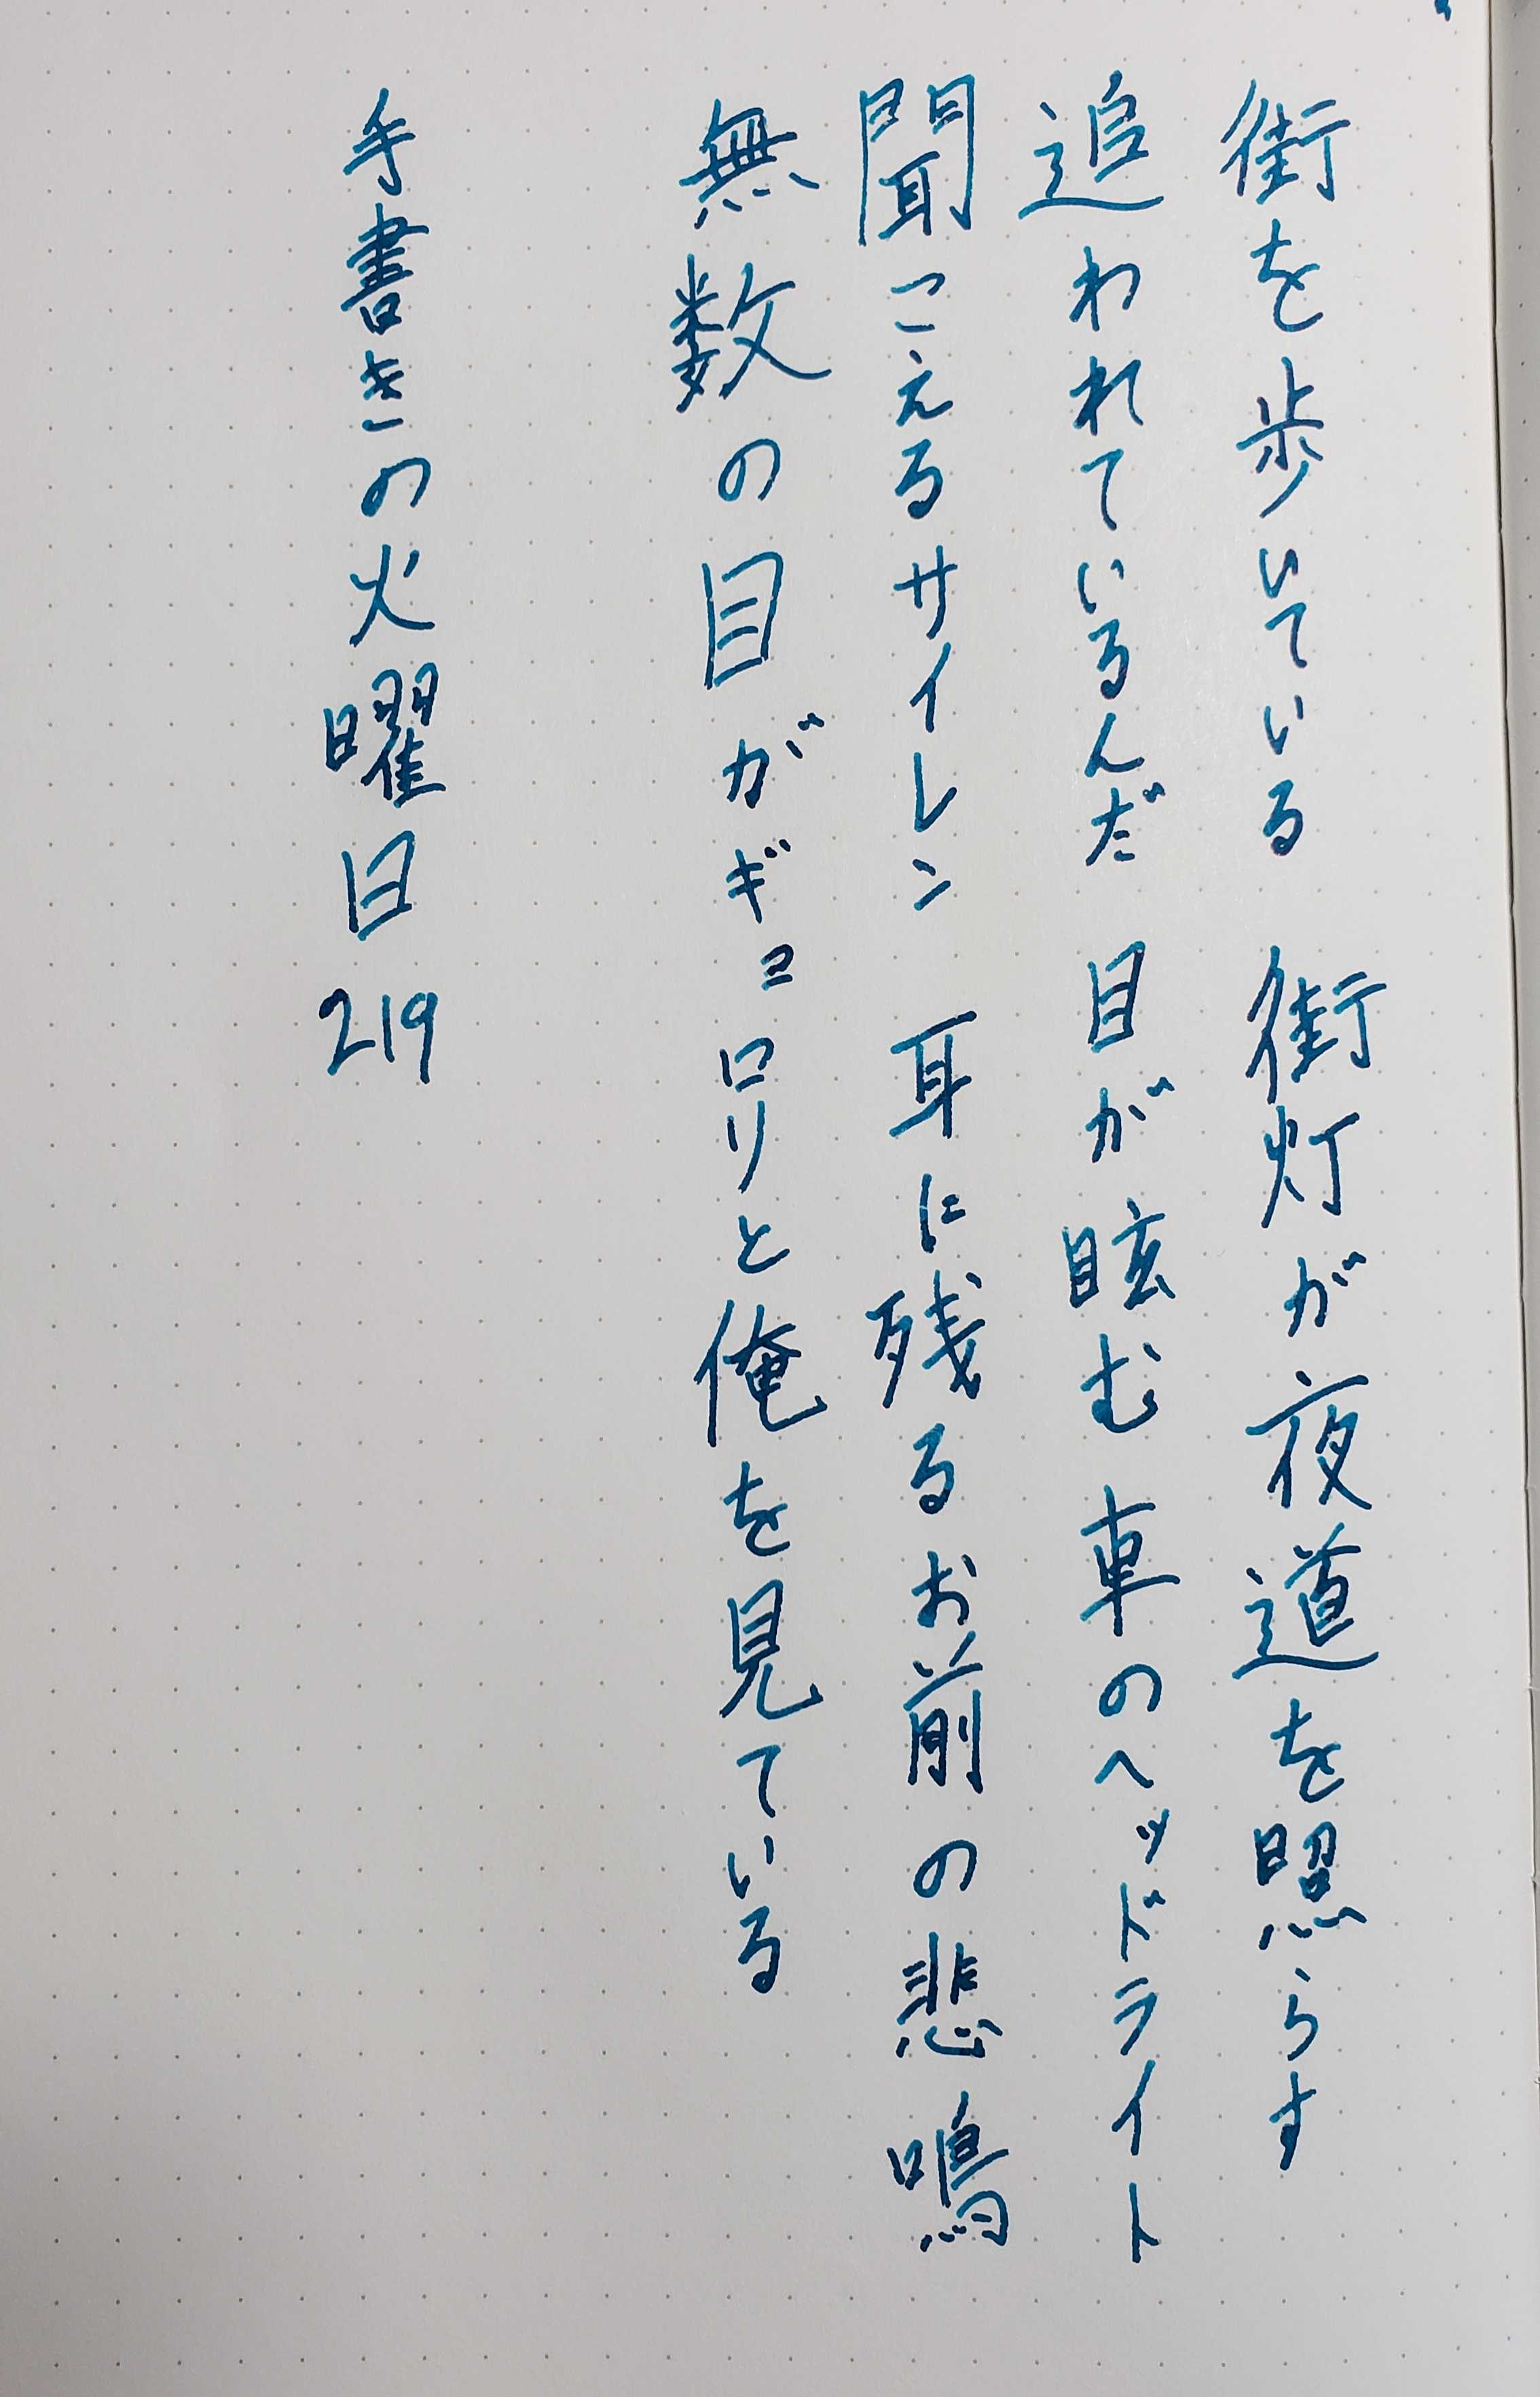 街を歩いている　街灯が夜道を照らす
追われているんだ　目が眩む車のヘッドライト
聞こえるサイレン　耳に残るお前の悲鳴
無数の目がギョロリと俺を見ている
手書きの火曜日219